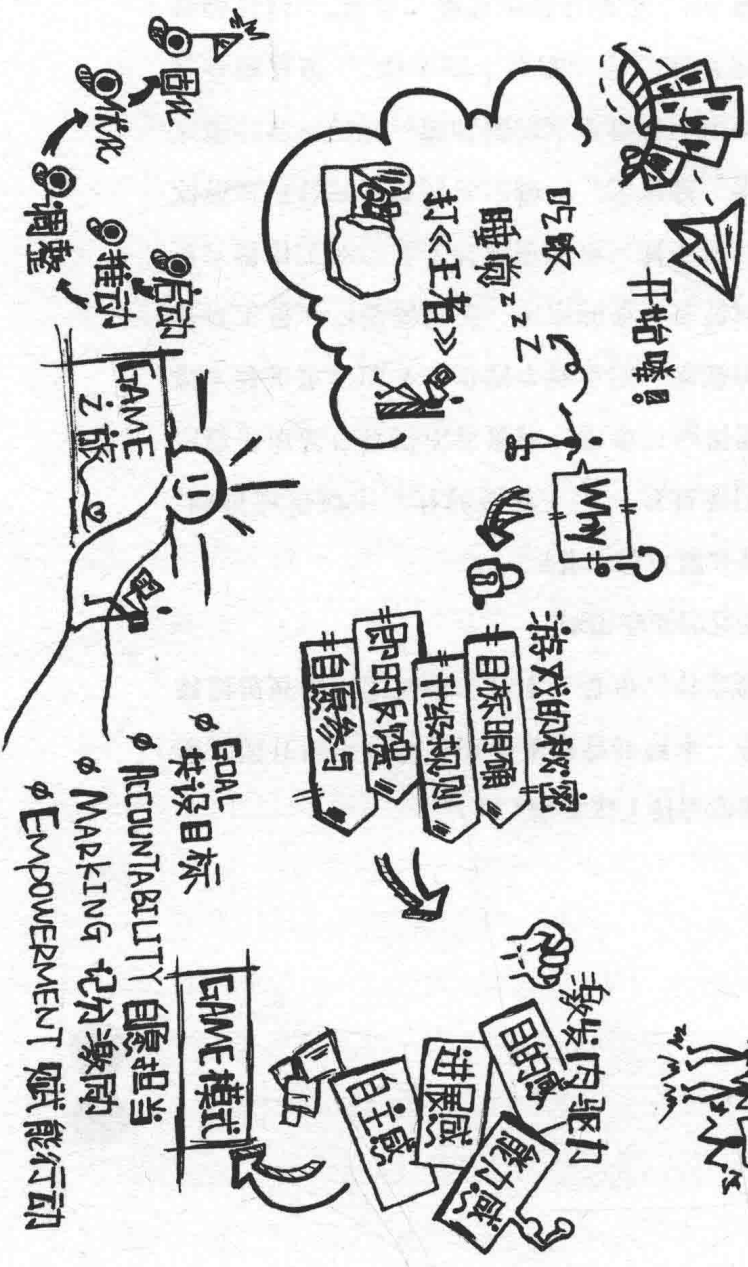 开始喽!
吃饭
睡觉zzZ
打<<王者>>
Why?
游戏的秘密
目标明确
升级规则
即时反馈
自愿参与
激发内驱力
目的感
能力感
进展感
自主感
GAME模式
GOAL
共设目标
ACCOUNTABILITY 自愿担当
MARKING 记分激励
EMPOWERMENT 赋能行动
GAME
之旅
启动
推动
调整
优化
固化